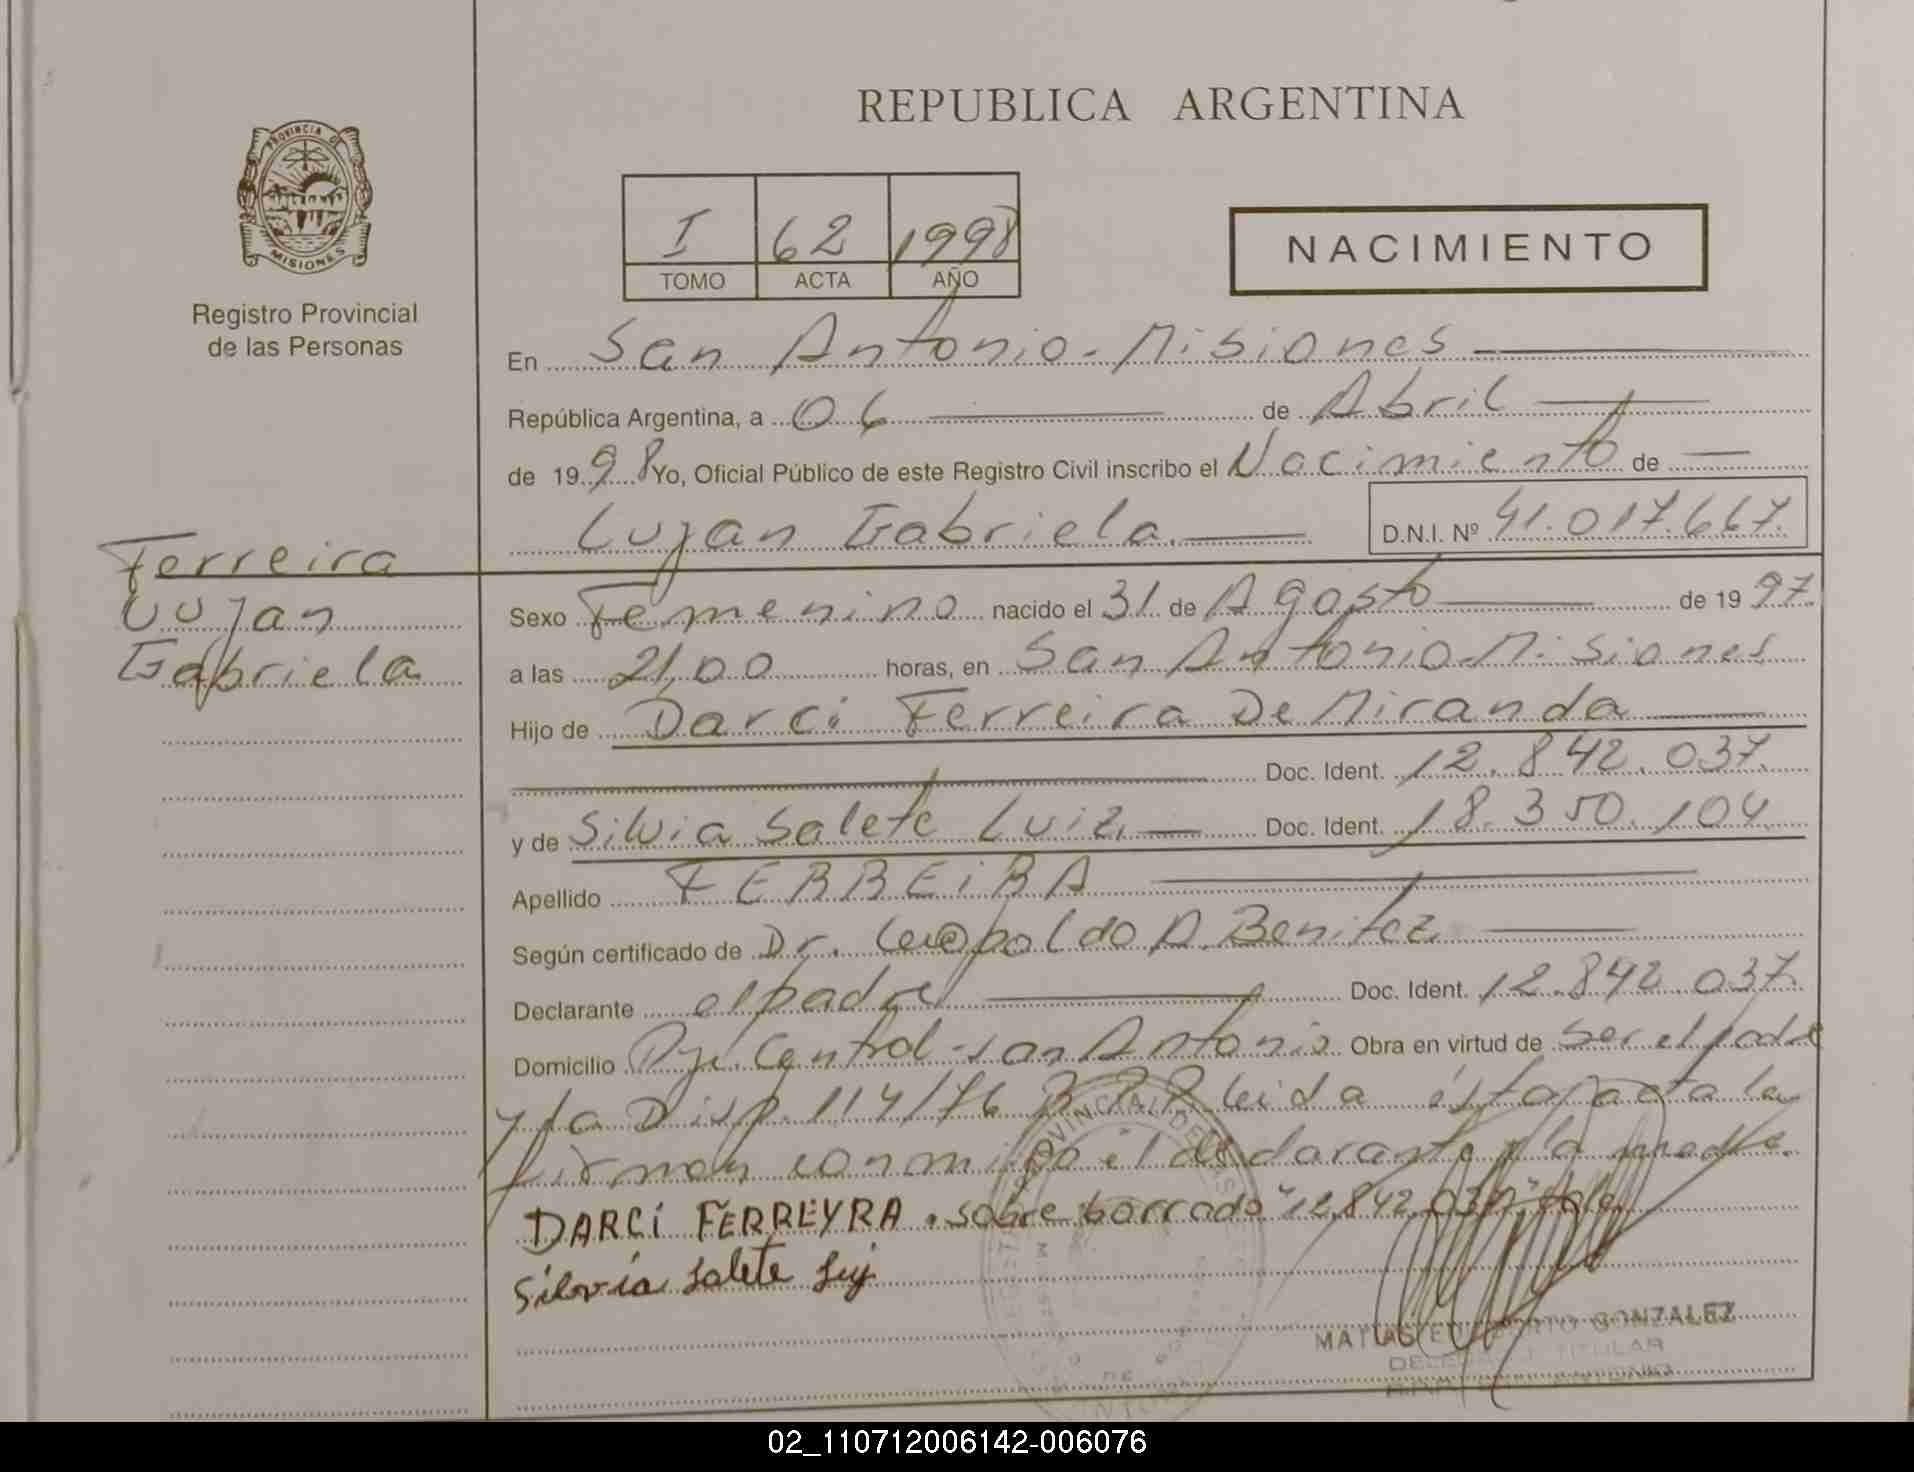 REPUBLICA ARGENTINA
PROVINCIA DE
MISIONES
Registro Provincial
de las Personas
I 62 1998
TOMO ACTA AÑO
NACIMIENTO
En San Antonio - Misiones
República Argentina, a 06 de Abril
de 1998 Yo, Oficial Público de este Registro Civil inscribo el Nacimiento de
Lujan Gabriela. D.N.I. Nº 41.017.667.
Ferreira
Lujan
Gabriela
Sexo Femenino nacido el 31 de Agosto de 1997.
a las 21,00 horas, en San Antonio - Misiones
Hijo de Darci Ferreira De Miranda
Doc. Ident. 12.842.037.
y de Silvia Salete Luiz. Doc. Ident. 18.350.104.
Apellido FERREIRA
Según certificado de Dr. Leopoldo A. Benitez
Declarante el padre Doc. Ident. 12.842.037.
Domicilio Pje. Central - San Antonio Obra en virtud de ser el padre
y la Disp. 114/76 leida ésta acta la
firman conmigo el declarante y la madre.
DARCi FERREYRA . sobre borrado "12.842.037" vale
Silvia Salete Luij
MATIAS GONZALEZ
TITULAR
02_110712006142-006076